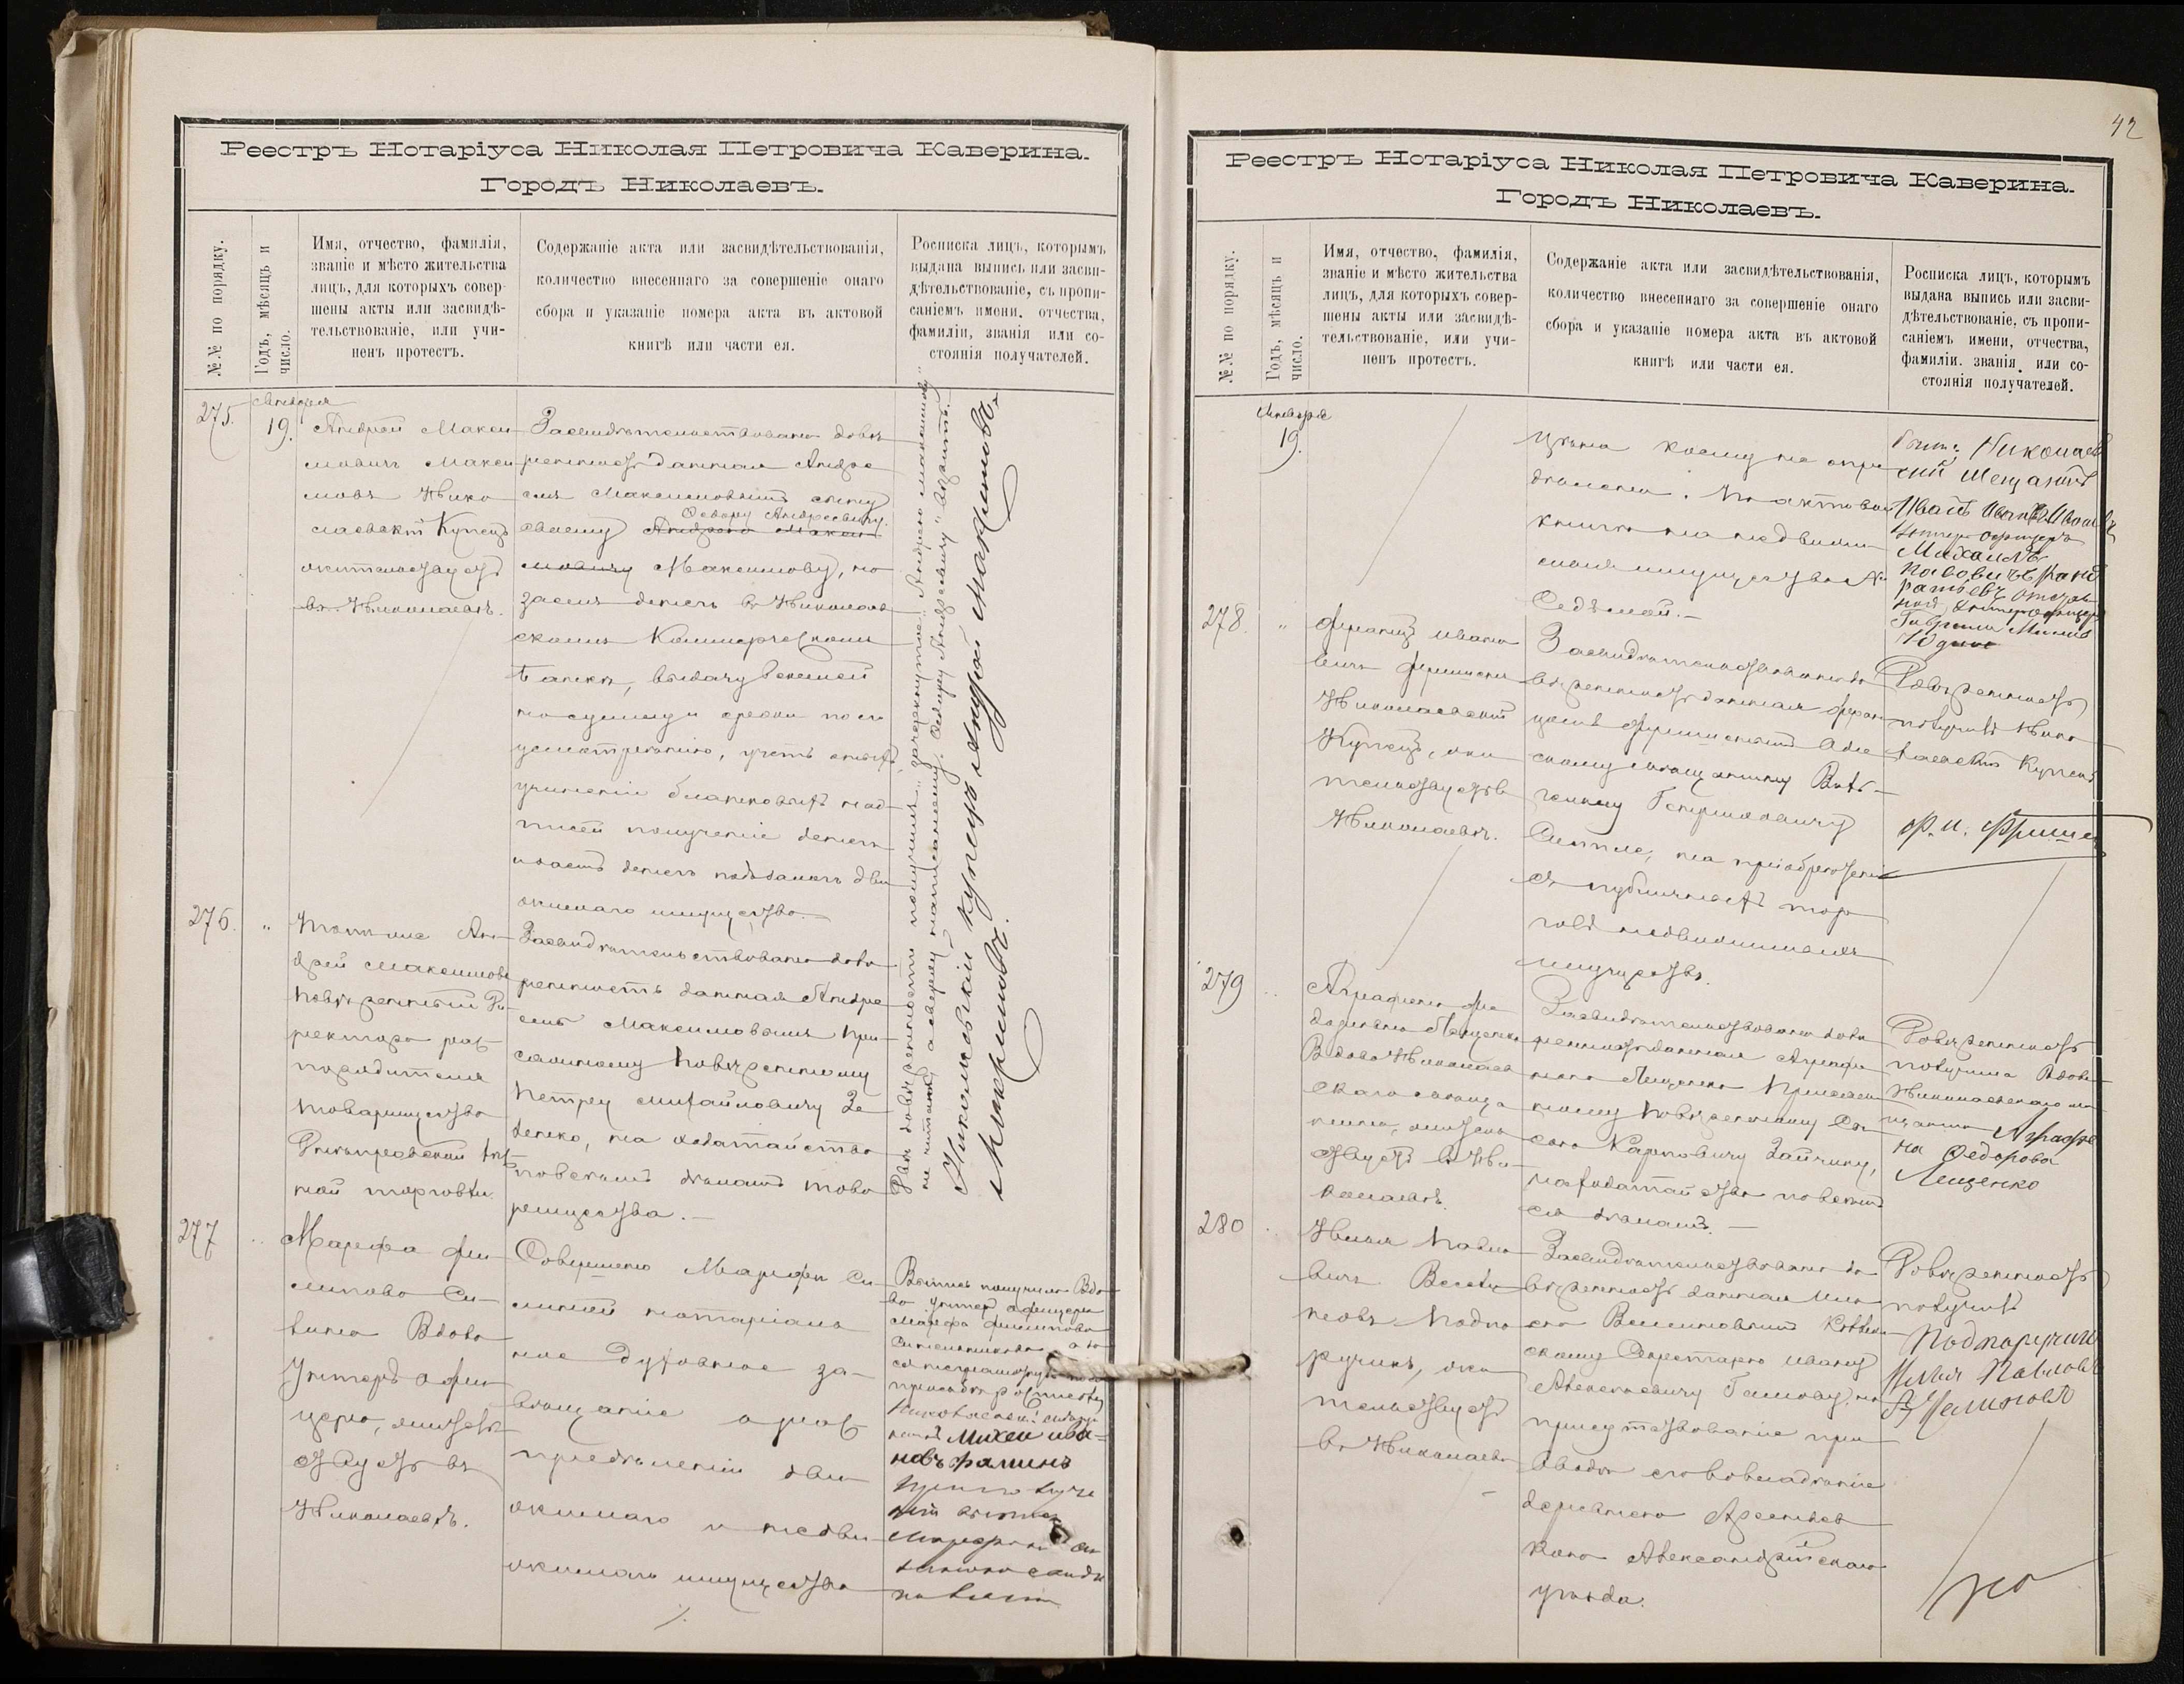 Реестръ Нотаріуса Николая Петровича Каверина.
Городъ Николаевъ.
№№ по порядку.
Годъ, мѣсяцъ и
число.
Имя, отчество, фамилія,
званіе и мѣсто жительства
лицъ, для которыхъ совер-
шены акты или засвидѣ-
тельствованіе, или учи-
ненъ протестъ.
Содержаніе акта или засвидѣтельствованія,
количество внесеннаго за совершеніе онаго
сбора и указаніе номера акта въ актовой
книгѣ или части ея.
Росписка лицъ, которымъ
выдана выпись или засви-
дѣтельствованіе, съ пропи-
саніемъ имени, отчества,
фамиліи, званія или со-
стоянія получателей.
275.
Января
19.
Андрей Макси
мовичъ Макси
мовъ Нико
лаевскій Купецъ
жительствуетъ
въ Николаевѣ.
Засвидѣтельствована довѣ
ренность данная Андре
емъ Максимовымъ сыну
своему Ѳедору Андреевичу
Андрею Макси
мовичу Максимову, на
заемъ денегъ въ Николаев
скомъ Коммерческомъ
Банкѣ, выдачу векселей
на сумму и сроки по его
усмотрѣнію, учетъ оныхъ,
учиненіе бланковыхъ над
писей полученіе денегъ
движимаго имущества.
Двѣ довѣренности получилъ, зачеркнутое „Андрею Максимовичу“
не читать, а сверху написанному „Ѳедору Андреевичу“ вѣрить.
Николаевскій купецъ Андрей Максимовъ
Максимовъ.
276.
"
Тотъ же Ан
дрей Максимовъ
повѣренный Ди
ректора рас
порядителя
товарищества
торговли.
Засвидѣтельствована довѣ
ренность данная Андре
емъ Максимовымъ При
сяжному повѣренному
Петру Михайловичу Зе
денко, на ходатайство
по всѣмъ дѣламъ това
рищества.
277
"
Марфа Фи
липова Си
Вдова
Унтеръ офи
цера, житель
ствуетъ въ
Николаевѣ.
Совершено Марфѣ Си
нотаріаль
ное Духовное за
вѣщаніе о рас
предѣленіи дви
жимаго и недви
жимаго имущества
Выпись получила Вдо
ва Унтеръ офицера
Марфа Филипова
Михей Ива-
новъ Фаминъ
42
Реестръ Нотаріуса Николая Петровича Каверина.
Городъ Николаевъ.
№№ по порядку.
Годъ, мѣсяцъ и
число.
Имя, отчество, фамилія,
званіе и мѣсто жительства
лицъ, для которыхъ совер-
шены акты или засвидѣ-
тельствованіе, или учи-
ненъ протестъ.
Содержаніе акта или засвидѣтельствованія,
количество внесеннаго за совершеніе онаго
сбора и указаніе номера акта въ актовой
книгѣ или части ея.
Росписка лицъ, которымъ
выдана выпись или засви-
дѣтельствованіе, съ пропи-
саніемъ имени, отчества,
фамиліи, званія или со-
стоянія получателей.
Января
19.
цѣна коему не опре
дѣлена. По актовой
книгѣ на недвижи
мыя имущества №
Седьмой.
были: Николаев
скій Мещанинъ
Иванъ
Унтеръ офицеръ
Михаилъ
Гаврила
Юдинъ
278.
"
Францъ Ивано
вичъ Фришенъ
Николаевскій
Купецъ, жи
тельствуетъ въ
Николаевѣ.
Засвидѣтельствована до
вѣренность данная Фран
цомъ Фришеномъ Оде
скому мѣщанину Виль
гельму Генриховичу
на пріобрѣтеніе
съ публичныхъ тор
говъ недвижимыхъ
имуществъ.
Довѣренность
получилъ Нико
лаевскій Купецъ
Ф. И. Фришен
279
"
Аграфена Фе
доровна Лещенко
Вдова Николаев
скаго мѣща
нина, житель
ствуетъ въ Ни
колаевѣ.
Засвидѣтельствована довѣ
ренность данная Аграфе
ною Лещенко Присяж
ному повѣренному
Карповичу Зайчику,
на ходатайство по всѣмъ
ея дѣламъ.
Довѣренность
получила Вдова
Николаевскаго мѣ
щанина Аграфе
на Федорова
Лещенко
280
"
Илья Павло
вичъ Весели
новъ Подпо
ручикъ, жи
тельствуетъ
въ Николаевѣ
Засвидѣтельствована до
вѣренность данная Иль
ею Веселиновымъ Колеж
скому Секретарю Ивану
Алексѣевичу Гамову, на
присутствованіе при
вводѣ его во владѣніе
деревнею Арсеньев
кою Александрійскаго
уѣзда.
Довѣренность
получилъ
Подпоручикъ
Илья Павловъ
Веселиновъ